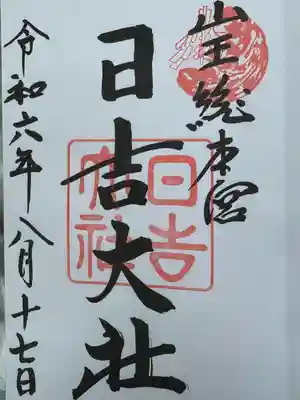 山王総本宮
日吉大社
令和六年八月十七日
日吉大社